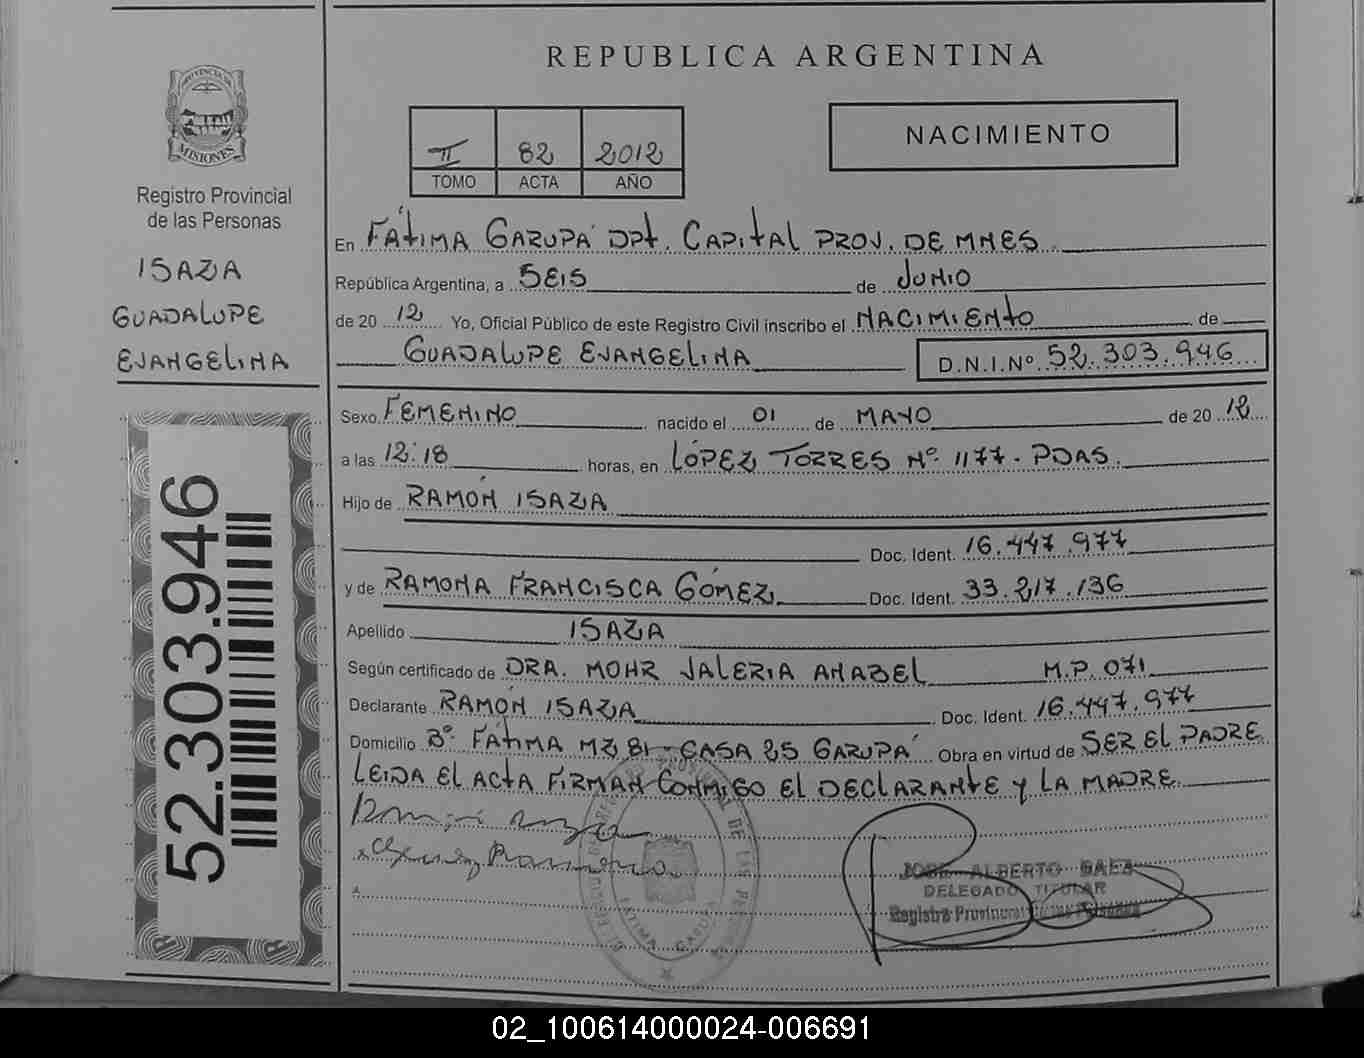 REPUBLICA ARGENTINA
PROVINCIA DE
MISIONES
Registro Provincial
de las Personas
ISAZA
GUADALUPE
EVANGELINA
52.303.946
II 82 2012
TOMO ACTA AÑO
NACIMIENTO
En FÁTIMA GARUPÁ DPT. CAPITAL PROV. DE MNES
República Argentina, a SEIS de JUNIO
de 20 12 Yo, Oficial Público de este Registro Civil inscribo el NACIMIENTO de
GUADALUPE EVANGELINA D.N.I.Nº 52.303.946
Sexo FEMENINO nacido el 01 de MAYO de 20 12
a las 12:18 horas, en LÓPEZ TORRES Nº 1177 - PDAS.
Hijo de RAMÓN ISAZA
Doc. Ident. 16.447.977
y de RAMONA FRANCISCA GÓMEZ Doc. Ident. 33.217.136
Apellido ISAZA
Según certificado de DRA. MOHR VALERIA ANABEL M.P. 071
Declarante RAMÓN ISAZA Doc. Ident. 16.447.977
Domicilio Bº FÁTIMA MZ 81 - CASA 25 GARUPÁ Obra en virtud de SER EL PADRE
LEIDA EL ACTA FIRMAN CONMIGO EL DECLARANTE Y LA MADRE
JOSE ALBERTO BAEZ
DELEGADO TITULAR
Registro Provincial de las Personas
FATIMA GARUPA
02_100614000024-006691